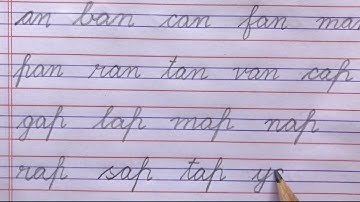 an ban can fan man
pan ran tan van cap
gap lap map nap
rap sap tap